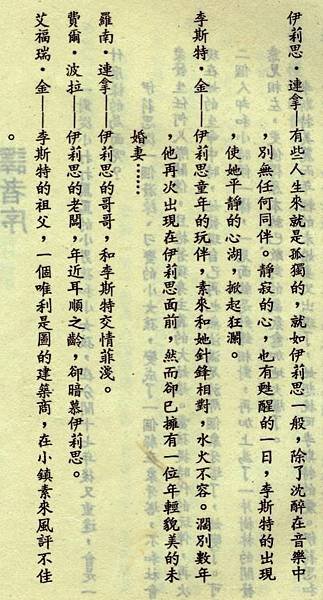 伊莉思·連拿—有些人生來就是孤獨的，就如伊莉思一般，除了沈醉在音樂中
，別無任何同伴。靜寂的心，也有甦醒的一日，李斯特的出現
，使她平靜的心湖，掀起狂瀾。
李斯特·金——伊莉思童年的玩伴，素來和她針鋒相對，水火不容。濶別數年
，他再次出現在伊莉思面前，然而卻已擁有一位年輕貌美的未
婚妻……
羅南·連拿——伊莉思的哥哥，和李斯特交情菲淺。
費爾·波拉——伊莉思的老闆，年近耳順之齡，卻暗慕伊莉思。
艾福瑞·金——李斯特的祖父，一個唯利是圖的建築商，在小鎮素來風評不佳
。